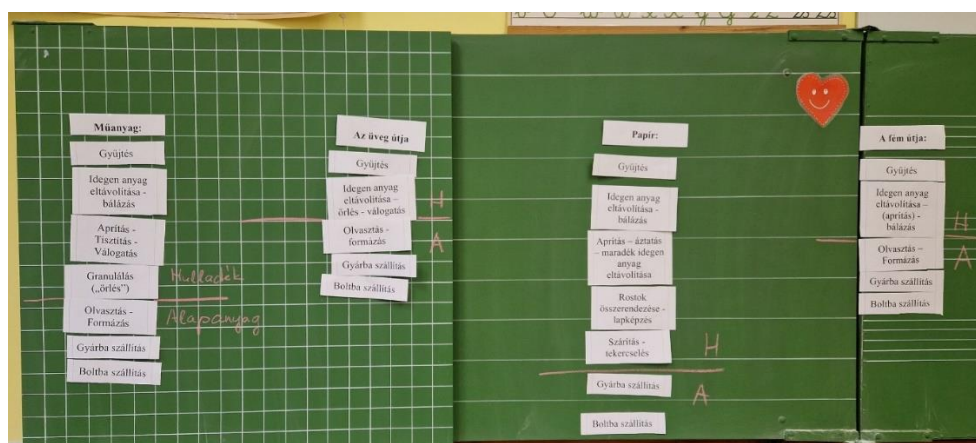 Műanyag:
Gyűjtés
Idegen anyag
eltávolítása -
bálázás
Aprítás -
Tisztítás -
Válogatás
Granulálás
(„őrlés”)
Hulladék
Alapanyag
Olvasztás -
Formázás
Gyárba szállítás
Boltba szállítás
Az üveg útja
Gyűjtés
Idegen anyag
eltávolítása –
őrlés - válogatás
H
A
Olvasztás -
formázás
Gyárba szállítás
Boltba szállítás
Papír:
Gyűjtés
Idegen anyag
eltávolítása -
bálázás
Aprítás – áztatás
– maradék idegen
anyag
eltávolítása
Rostok
összerendezése -
lapképzés
Szárítás -
tekercselés
H
A
Gyárba szállítás
Boltba szállítás
A fém útja:
Gyűjtés
Idegen anyag
eltávolítása –
(aprítás) -
bálázás
H
A
Olvasztás –
Formázás
Gyárba szállítás
Boltba szállítás